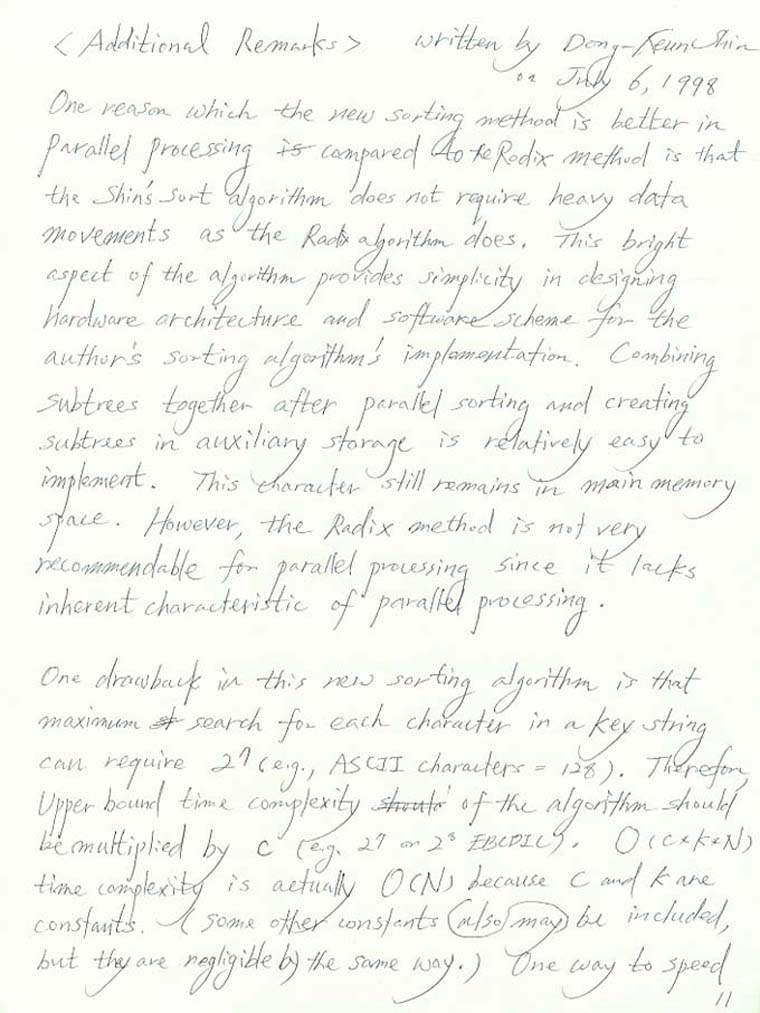 < Additional Remarks > written by Dong-Keun Shin
on July 6, 1998
One reason which the new sorting method is better in
Parallel Processing is compared to the Radix method is that
the Shin's Sort algorithm does not require heavy data
movements as the Radix algorithm does. This bright
aspect of the algorithm provides simplicity in designing
hardware architecture and software scheme for the
author's sorting algorithm's implementation. Combining
subtrees together after parallel sorting and creating
subtrees in auxiliary storage is relatively easy to
implement. This character still remains in main memory
space. However, the Radix method is not very
recommendable for parallel processing since it lacks
inherent characteristic of parallel processing.
One drawback in this new sorting algorithm is that
maximum st search for each character in a key string
can require 2⁷ (e.g., ASCII characters = 128). Therefore,
Upper bound time complexity should of the algorithm should
be multiplied by C (e.g. 2⁷ or 2⁸ EBCDIC). O(C*K*N)
time complexity is actually O(N) because C and K are
constants. (Some other constants also may be included,
but they are negligible by the same way.) One way to speed
11